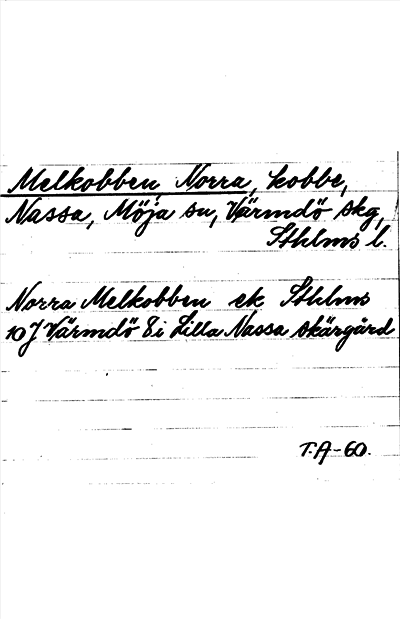 Melkobben, Norra, kobbe,
Nassa, Möja sn, Värmdö skg,
Sthlms l.
Norra Melkobben ek Sthlms
10J Värmdö 8i Lilla Nassa skärgård
T.A-60.